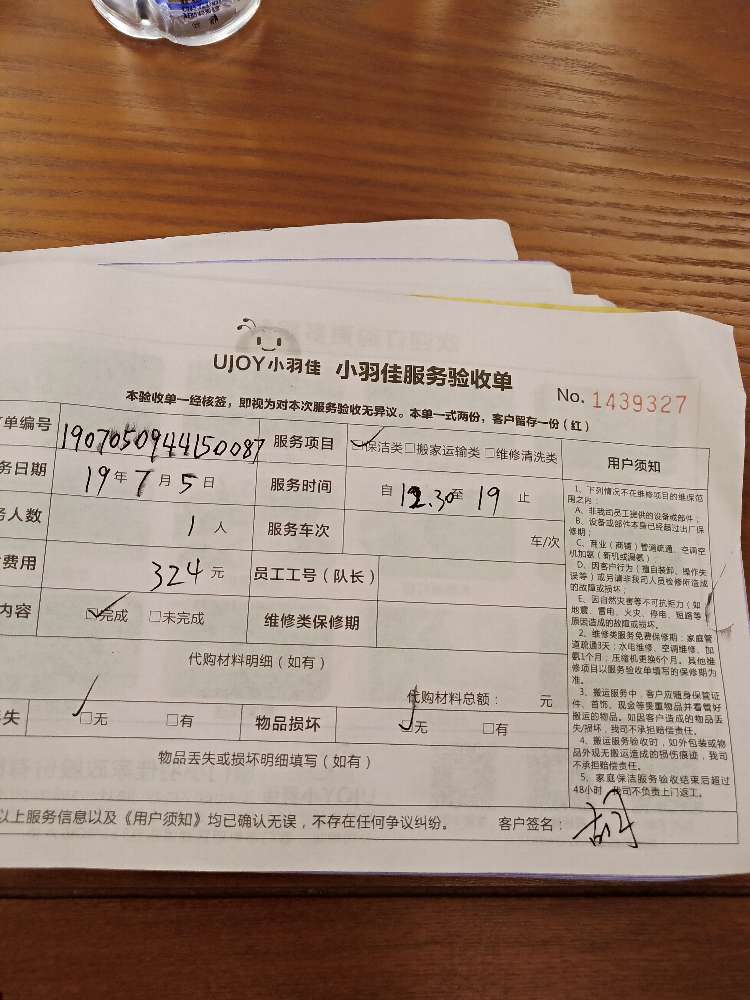 UJOY小羽佳 小羽佳服务验收单
No. 1439327
本验收单一经核签，即视为对本次服务验收无异议。本单一式两份，客户留存一份（红）
单编号 1907050944150087 服务项目 ☑保洁类□搬家运输类□维修清洗类 用户须知
务日期 19年7月5日 服务时间 自12.30至19止
务人数 1人 服务车次 车/次
费用 324元 员工工号（队长）
内容 ☑完成 □未完成 维修类保修期
代购材料明细（如有）
代购材料总额： 元
失 ☑无 □有 物品损坏 ☑无 □有
物品丢失或损坏明细填写（如有）
以上服务信息以及《用户须知》均已确认无误，不存在任何争议纠纷。 客户签名：
1、下列情况不在维修项目的维保范
围之内：
A、非我司员工提供的设备或部件；
B、设备或部件本身已经超过出厂保
修期；
C、商业（商铺）管道疏通、空调空
机加氨（新机或漏氨）
D、因客户行为（擅自装卸、操作失
误等）或另请非我司人员检修所造成
的故障或损坏；
E、因自然灾害等不可抗拒力（如
地震、雷电、火灾、停电、短路等）
原因造成的故障或损坏。
2、维修类服务免费保修期：家庭管
道疏通3天；水电维修、空调维修、加
氨1个月；压缩机更换6个月。其他维
修项目以服务验收单填写的保修期为
准。
3、搬运服务中，客户应随身保管证
件、首饰、现金等贵重物品并看管好
搬运的物品。如因客户造成的物品丢
失/损坏，我司不承担赔偿责任。
4、搬运服务验收时，如外包装或物
品外观无搬运造成的损伤痕迹，我司
不承担赔偿责任。
5、家庭保洁服务验收结束后超过
48小时，我司不负责上门返工。